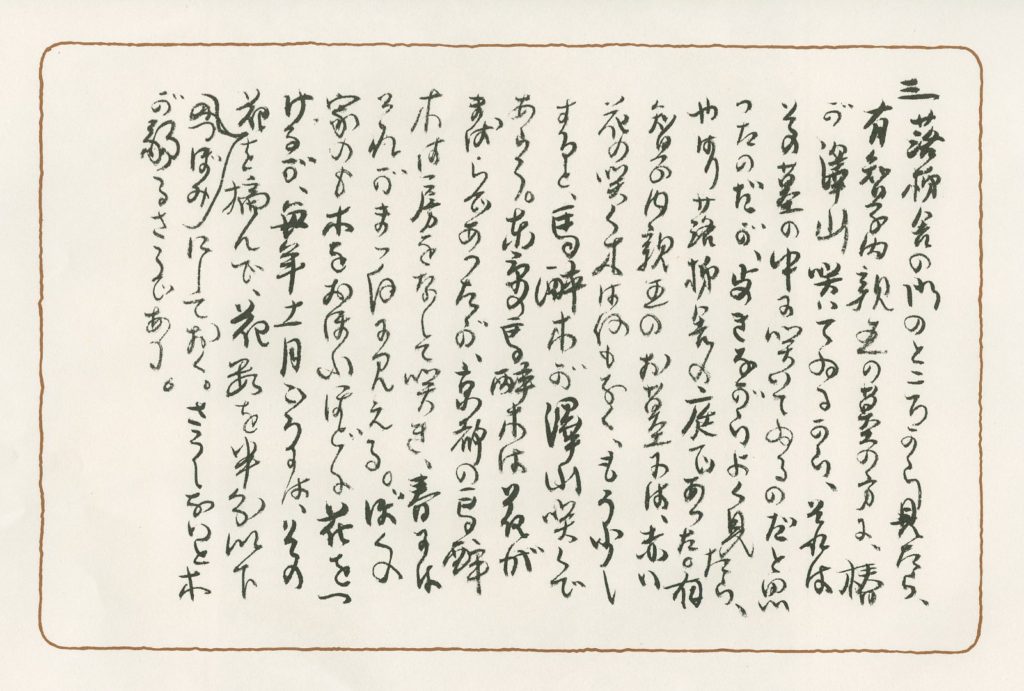 三 落柿舎の門のところから見たら、
有智子内親王の墓の方に、椿
が澤山咲いてゐるから、それは
その墓の中に咲いてゐるのだと思
つたのだが、歩きながらよく見たら、
やはり落柿舎の庭であつた。有
智子内親王のお墓には、赤い
花の咲く木は何もなく、もう少し
すると、馬酔木が澤山咲くで
あらう。東京の馬酔木は花が
まばらであつたが、京都の馬酔
木は房をなして咲き、春には
それがまつ白に見える。ぼくの
家のも木をおほふほどに花をつ
けるが、毎年十一月ごろには、その
花を摘んで、花數を半分以下
のつぼみにしておく。さうしないと木
が弱るさうである。